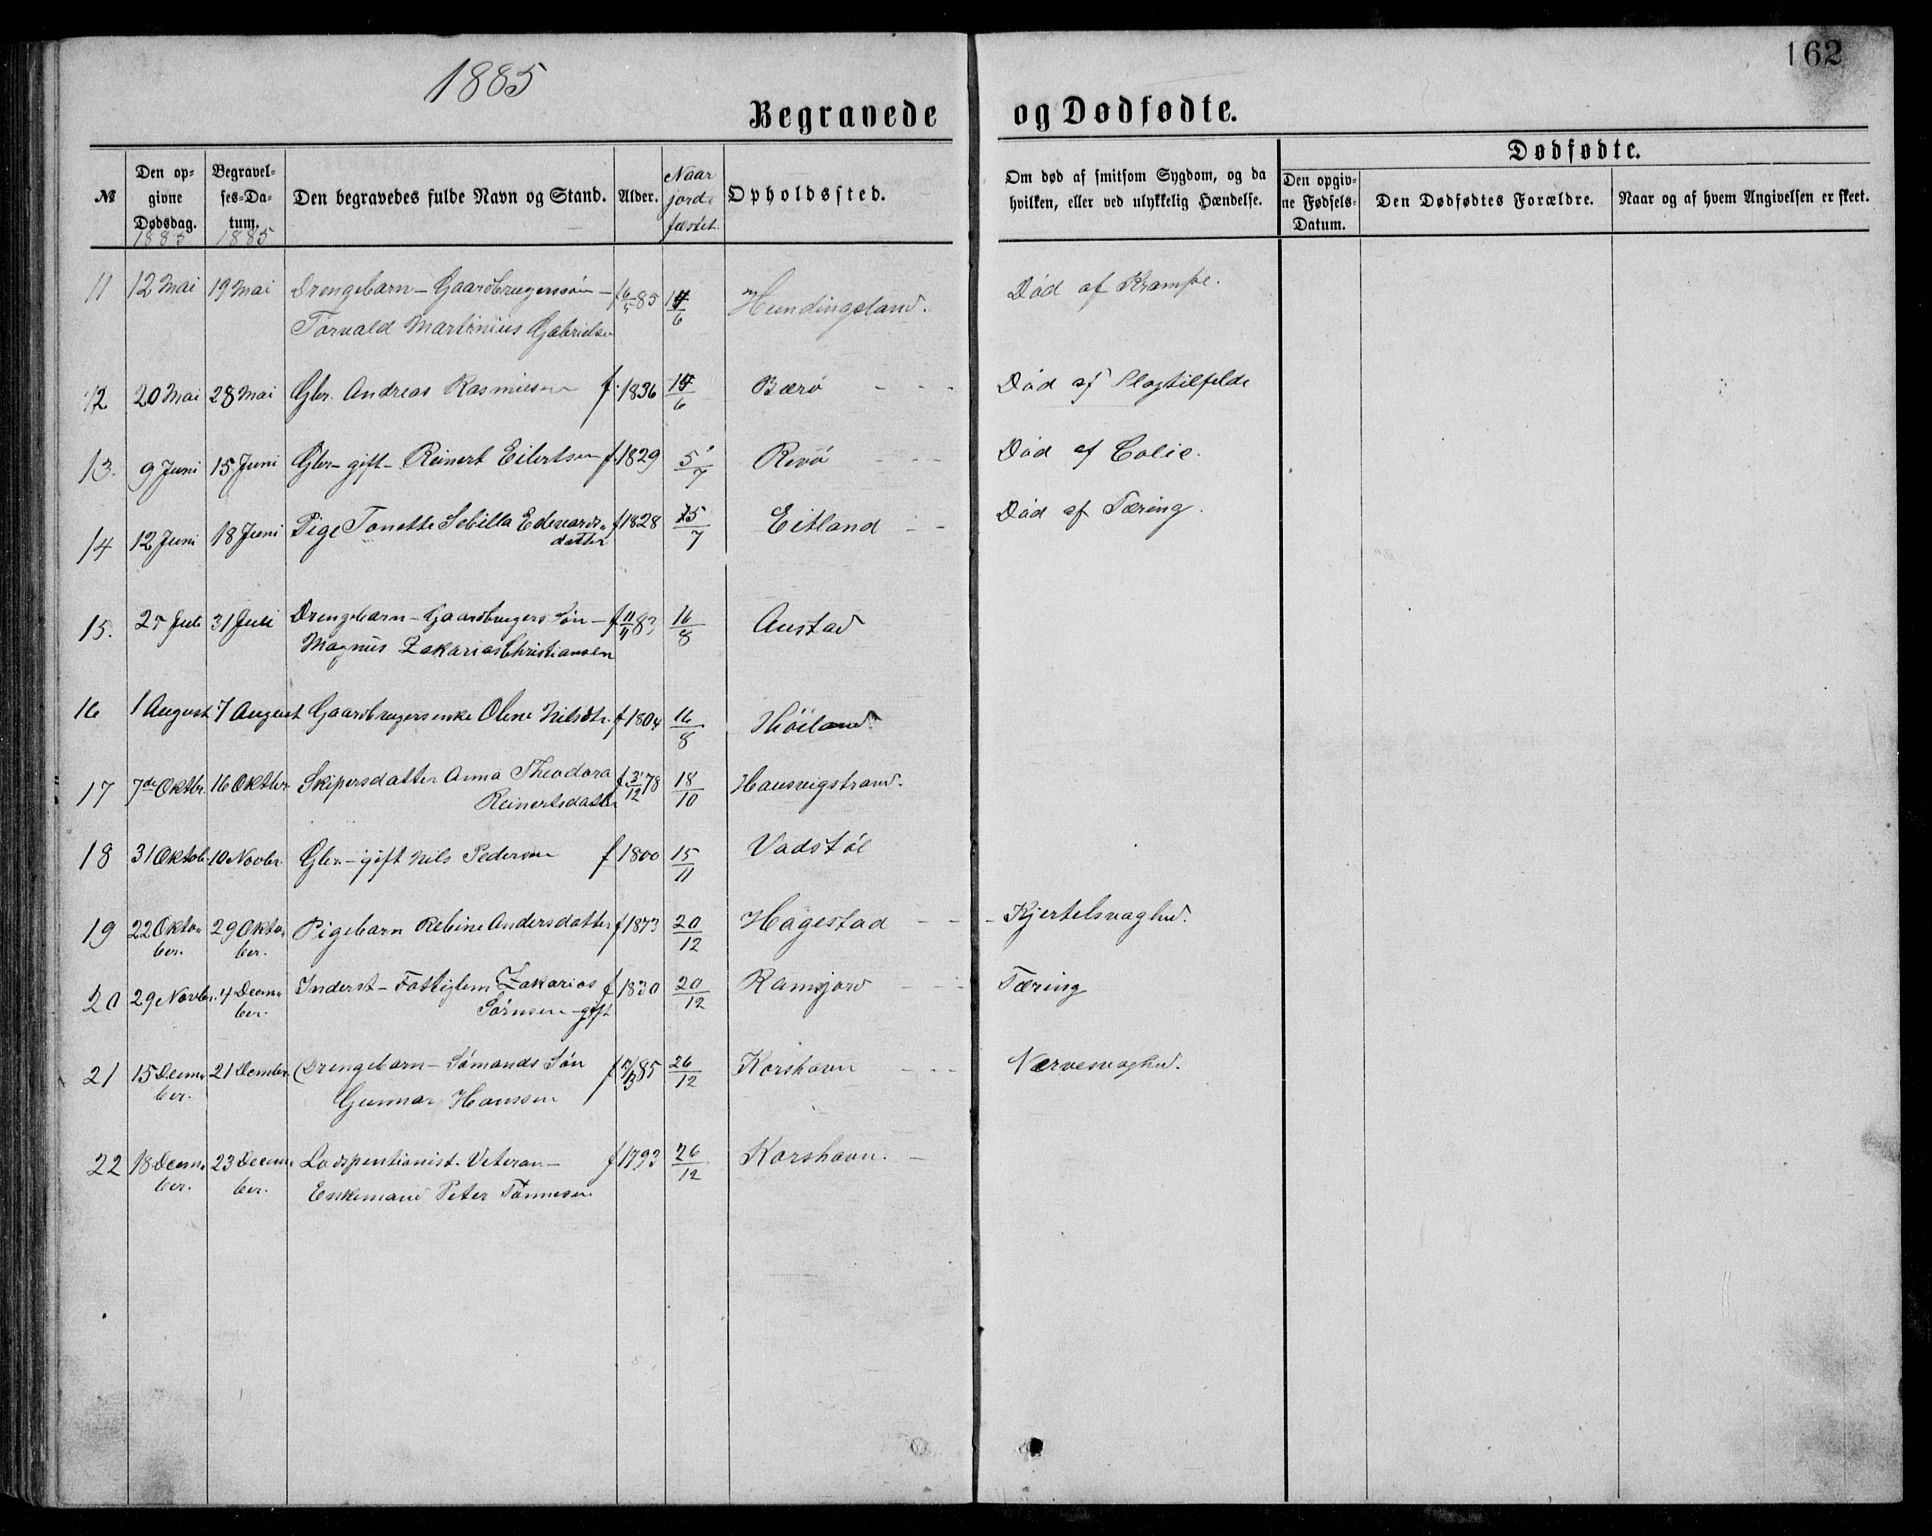 1885
162
Begravede og Dødfødte.
Dødfødte.
№ | Den opgivne Dødsdag. 1885 | Begravelses-Datum. 1885 | Den begravedes fulde Navn og Stand. | Alder. | Naar jordfæstet | Opholdssted. | Om død af smitsom Sygdom, og da hvilken, eller ved ulykkelig Hændelse. | Den opgivne Fødsels-Datum. | Den Dødfødtes Forældre. | Naar og af hvem Angivelsen er skeet.
11 12 Mai 19 Mai Drengebarn – Gaardbrugerssøn – f 6/5 85 Hundingsland. Død af Krampe.
Torvald Martinius Gabrielsen
12 20 Mai 28 Mai Gbr. Andreas Rasmussen f. 1836 Bærø - - - Død af Slagtilfelde
13. 9 Juni 15 Juni Gbr – gift – Reinert Eilertsen f. 1829 5/7 Revø - - Død af Colic.
14 12 Juni 18 Juni Pige Tonette Sebilla Edvards- f 1828 15/7 Eitland - - Død af Tæring.
datter
15. 25 Juli 31 Juli Drengebarn – Gaardbrugers Søn – f 11/4 83 16/8 Austad
Magnus Zakarias Christiansen
16 1 August 7 August Gaardbrugersenke Olene Nilsdtr. f 1804 16/8 Høiland
17 7de Oktbr. 16 Oktbr. Skipersdatter Anna Theodora f 3/12 78 18/10 Hausvigstrand.
Reinertsdatter
18 31 Oktob. 10 Novbr. Gbr. – gift Nils Pedersen f 1800 15/11 Vadstøl
19 22 Okto- 29 Okto- Pigebarn Rebine Andersdatter f 1873 20/12 Hagestad - - - Kjertelsvaghed.
ber. ber.
20 29 Novbr. 4 Decem- Inderst – Fattiglem Zakarias f 1830 20/12 Ramsjord - - - Tæring
ber. Sørnsen – gift
21 15 Decem- 21 Dcember. Drengebarn – Sømands Søn f 85 26/12 Korshavn - - - Nærvesvaghed.
ber. Gunnar Hanssen
22 18 Decem- 23 Decem- Lodspentionist. Veteran – f 1793 26/12 Korshavn. -
ber. ber. Enkemand Peter Tønnesen